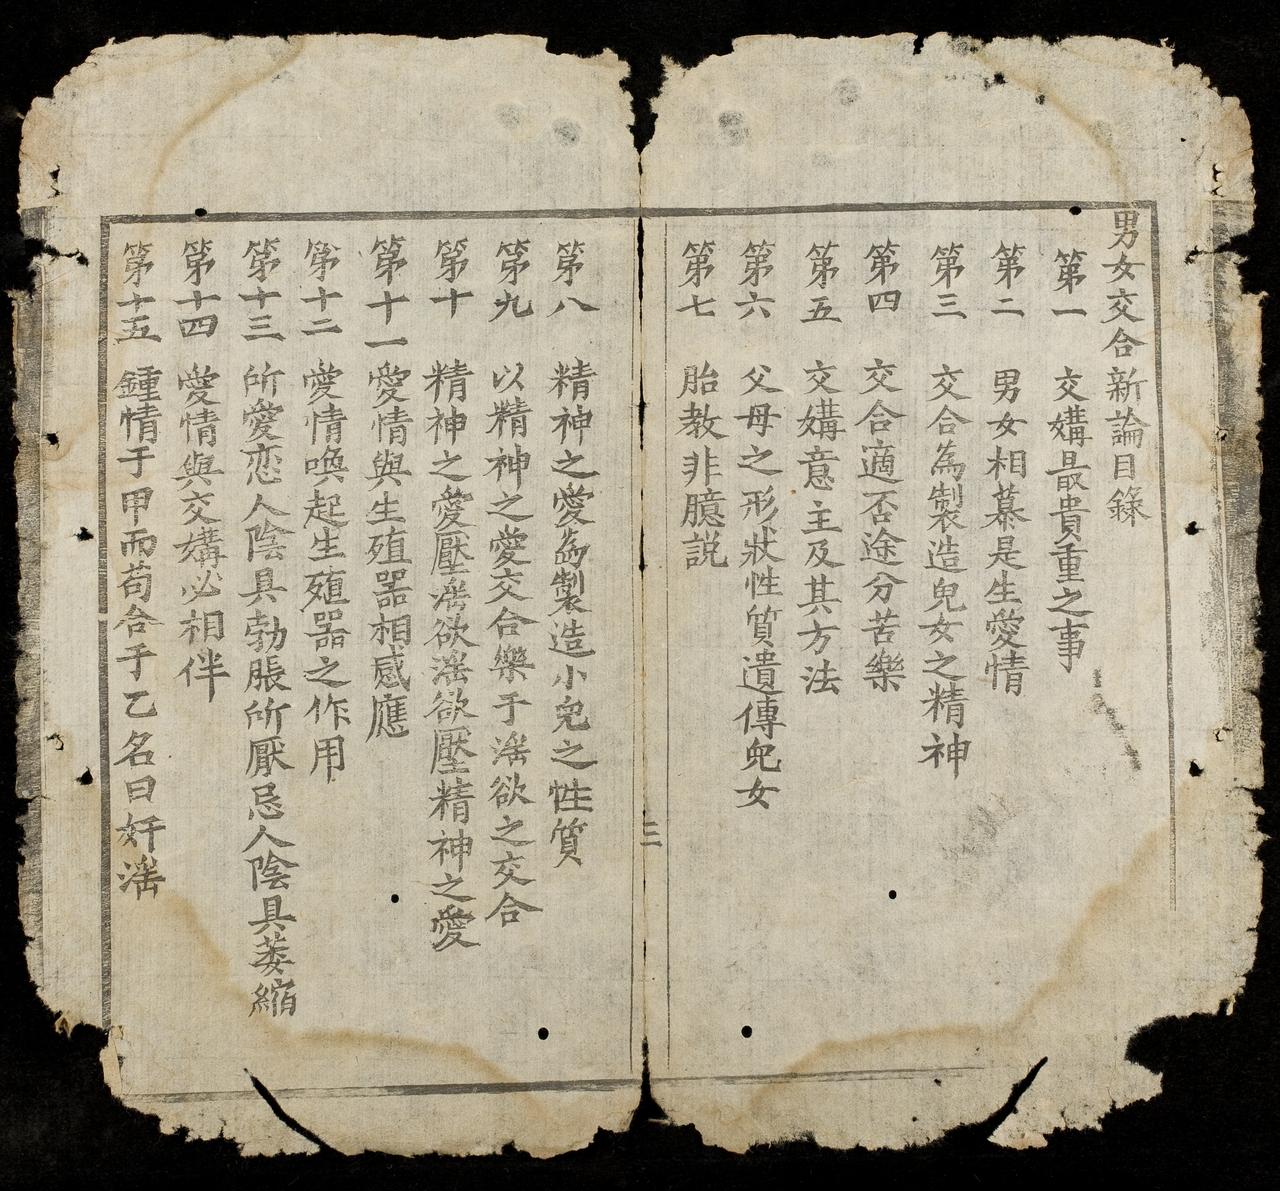 男女交合新論目錄
第一　交媾最貴重之事
第二　男女相慕是生愛情
第三　交合為製造兒女之精神
第四　交合適否途分苦樂
第五　交媾意主及其方法
第六　父母之形狀性質遺傳兒女
第七　胎教非臆説
三
第八　精神之愛為製造小兒之性質
第九　以精神之愛交合樂于滛欲之交合
第十　精神之愛壓滛欲滛欲壓精神之愛
第十一　愛情與生殖器相感應
第十二　愛情喚起生殖器之作用
第十三　所愛恋人陰具勃脹所厭忌人陰具萎縮
第十四　愛情與交媾必相伴
第十五　鍾情于甲而苟合于乙名曰奸滛